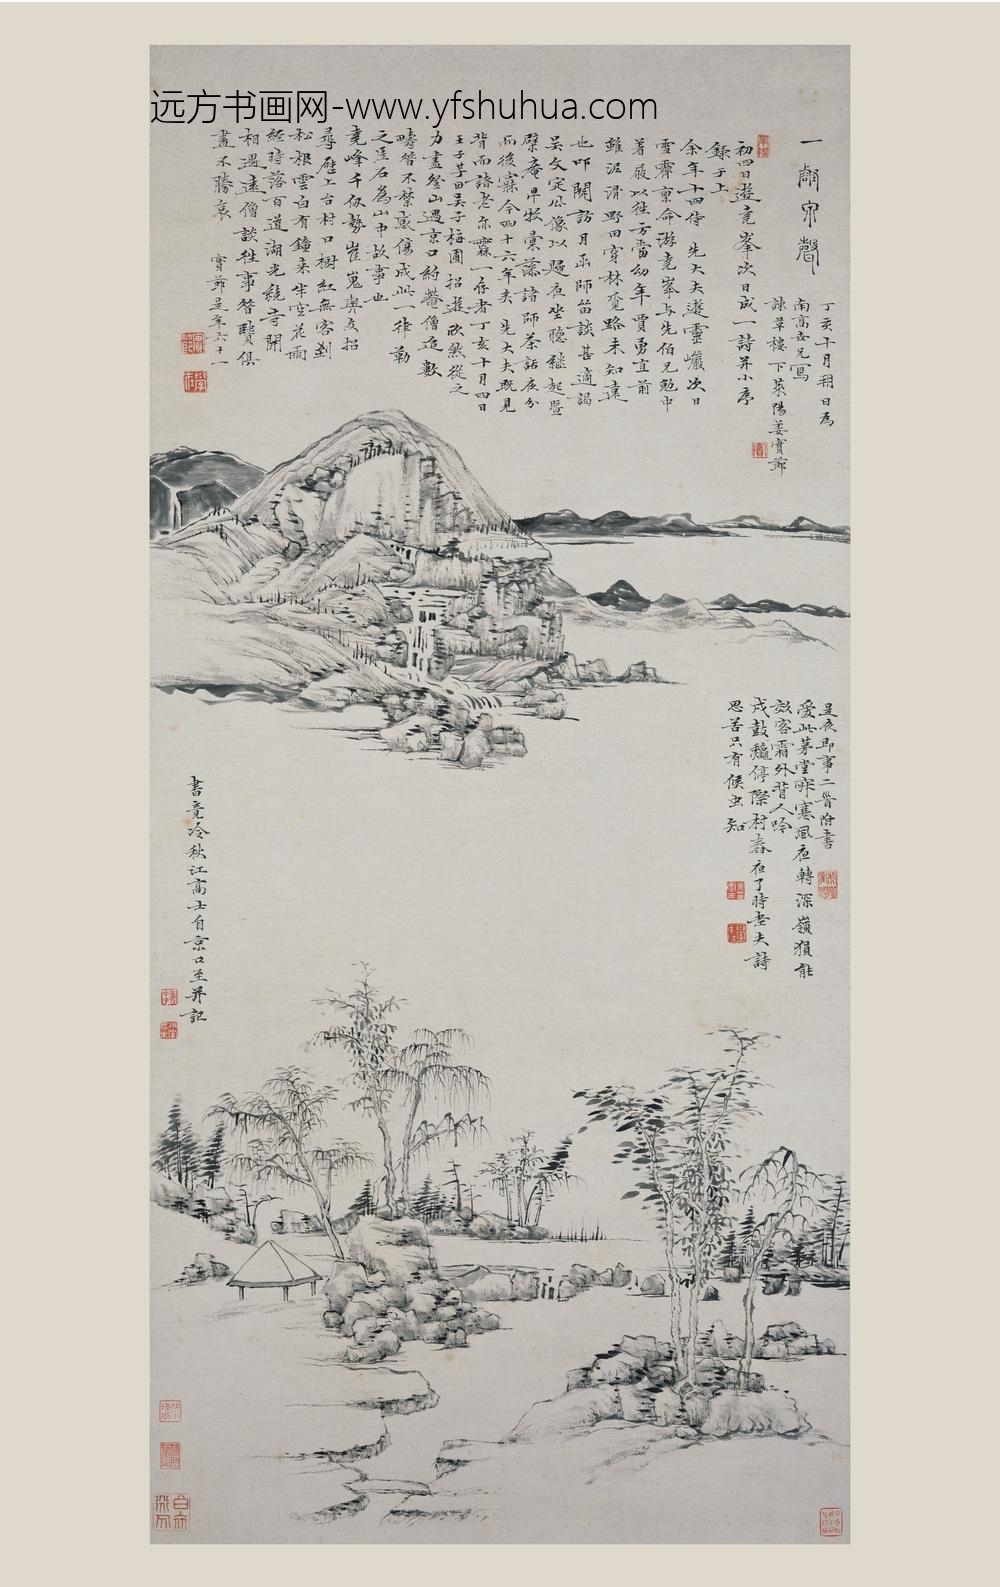 远方书画网-www.yfshuhua.com
一壑泉聲
丁亥十月朔日為
南高世兄寫
諫草樓下萊陽姜實節
初四日遊堯峯次日成一詩并小序
錄于上
余年十四侍先大夫遊靈巖次日
雪霽東命游堯峯与先伯兄勉中
著屐以往方當幼年賈勇宜前
雖泥滑野田穿林覓路未知遠
也叩關訪月函師笛談甚適謁
吳文定公像以歸夜坐聽繼起暨
檗庵旦牧彙藻諸師茶話夜分
而後寐今四十六年矣先大夫既見
背而諸老亦靡一存者丁亥十月四日
王子芋田吳子梅圃招遊欣然從之
力盡登山遇京口約菴僧追數
疇昔不禁感傷成此一律勒
之厓石為山中故事也
堯峰千仞勢崔嵬與友招
尋歷上台村口樹紅無客到
松根雲白有鐘來半空花雨
經時落百道湖光繞寺開
相遇遠僧談往事昔賢俱
盡不勝哀 實節是年六十一
是夜即事二首附書
愛此茅堂暝寒風夜轉深嶺猿能
效客霜外背人吟
戍鼓黿停際村舂夜了時老夫詩
思苦只有候虫知
書竟冷秋江高士自京口至并記